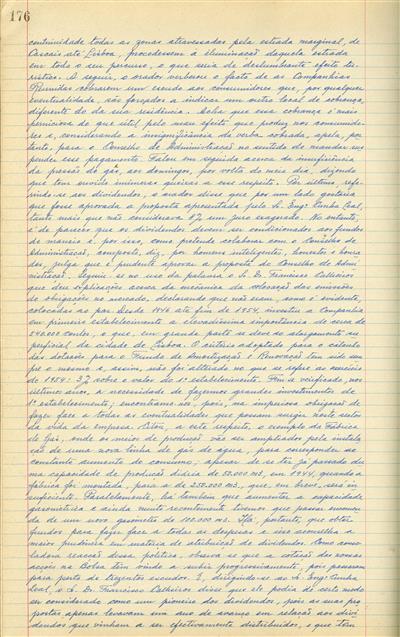 176
continuidade todas as zonas atravessadas pela estrada marginal, de
Cascais até Lisboa, procedessem à iluminação daquela estrada
em todo o seu percurso, o que seria de deslumbrante efeito tu-
rístico. A seguir, o orador verberou o facto de as Companhias
Reunidas cobrarem um escudo aos consumidores que, por qualquer
eventualidade, são forçados a indicar um outro local de cobrança,
diferente do da sua residência. Acha que essa cobrança é mais
perniciosa do que útil, pelo mau efeito que produz nos consumido-
res e, considerando a insignificância da verba cobrada, apela, por
tanto, para o Conselho de Administração no sentido de mandar sus-
pender esse pagamento. Falou em seguida acerca da insuficiência
da pressão do gás, aos domingos, por volta do meio dia, dizendo
que tem ouvido inúmeras queixas a esse respeito. Por último, refe-
rindo-se aos dividendos, o orador disse que, por um lado gostaria
que fosse aprovada a proposta apresentada pelo Sr. Engº Cunha Leal,
tanto mais que não considerava 8% um juro exagerado. No entanto,
é de parecer que os dividendos devem ser condicionados aos fundos
de maneio e, por isso, como pretende colaborar com o Conselho de
Administração, composto, diz, por homens inteligentes, honestos e honra-
dos, julga que é prudente aprovar a proposta do Conselho de Admi-
nistração. Seguiu-se no uso da palavra o Sr. Dr. Francisco Calheiros
que deu explicações acerca da mecânica da colocação das emissões
de obrigações no mercado, declarando que não eram, como é evidente,
colocadas ao par. Desde 1946 até fim de 1954, investiu a Companhia
em primeiro estabelecimento a elevadíssima importância de cerca de
540.000 contos, o que, em grande parte se deve ao alargamento su-
perficial da cidade de Lisboa. O critério adoptado para o cálculo
das dotações para o Fundo de Amortização e Renovação tem sido sem-
pre o mesmo e, assim, não foi alterado no que se refere ao exercício
de 1954: 3% sobre o valor do 1º estabelecimento. Tem-se verificado, nos
últimos anos, a necessidade de fazermos grandes investimentos de
1º estabelecimento; encontramo-nos, pois, na imperiosa obrigação de
fazer face a todas as eventualidades que possam surgir neste sector
da vida da empresa. Citou, a este respeito, o exemplo da Fábrica
de gás, onde os meios de produção vão ser ampliados pela instala-
ção de uma nova linha de gás de água, para corresponder ao
constante aumento de consumo, apesar de se ter já passado du-
ma capacidade de produção diária de 52.000 m3, em 1944, quando a
fábrica foi montada, para a de 250.000 m3, que, em breve, será in-
suficiente. Paralelamente, há também que aumentar a capacidade
gasométrica e ainda muito recentemente tivemos que passar encomen-
da de um novo gasómetro de 100.000 m3. Há, portanto, que obter
fundos para fazer face a todas as despesas e isso aconselha a
maior prudência em matéria de atribuição de dividendo. Como conso-
ladora reacção dessa política, observa-se que a cotação das nossas
acções na Bolsa tem vindo a subir progressivamente, pois passaram
para perto de trezentos escudos. E, dirigindo-se ao Sr. Engº Cunha
Leal, o Sr. Dr. Francisco Calheiros disse que ele podia de certo modo
ser considerado como um pioneiro dos dividendos, pois as suas pro-
postas apenas levavam um ano de avanço em relação aos divi-
dendos que vinham a ser efectivamente distribuídos, o que tem